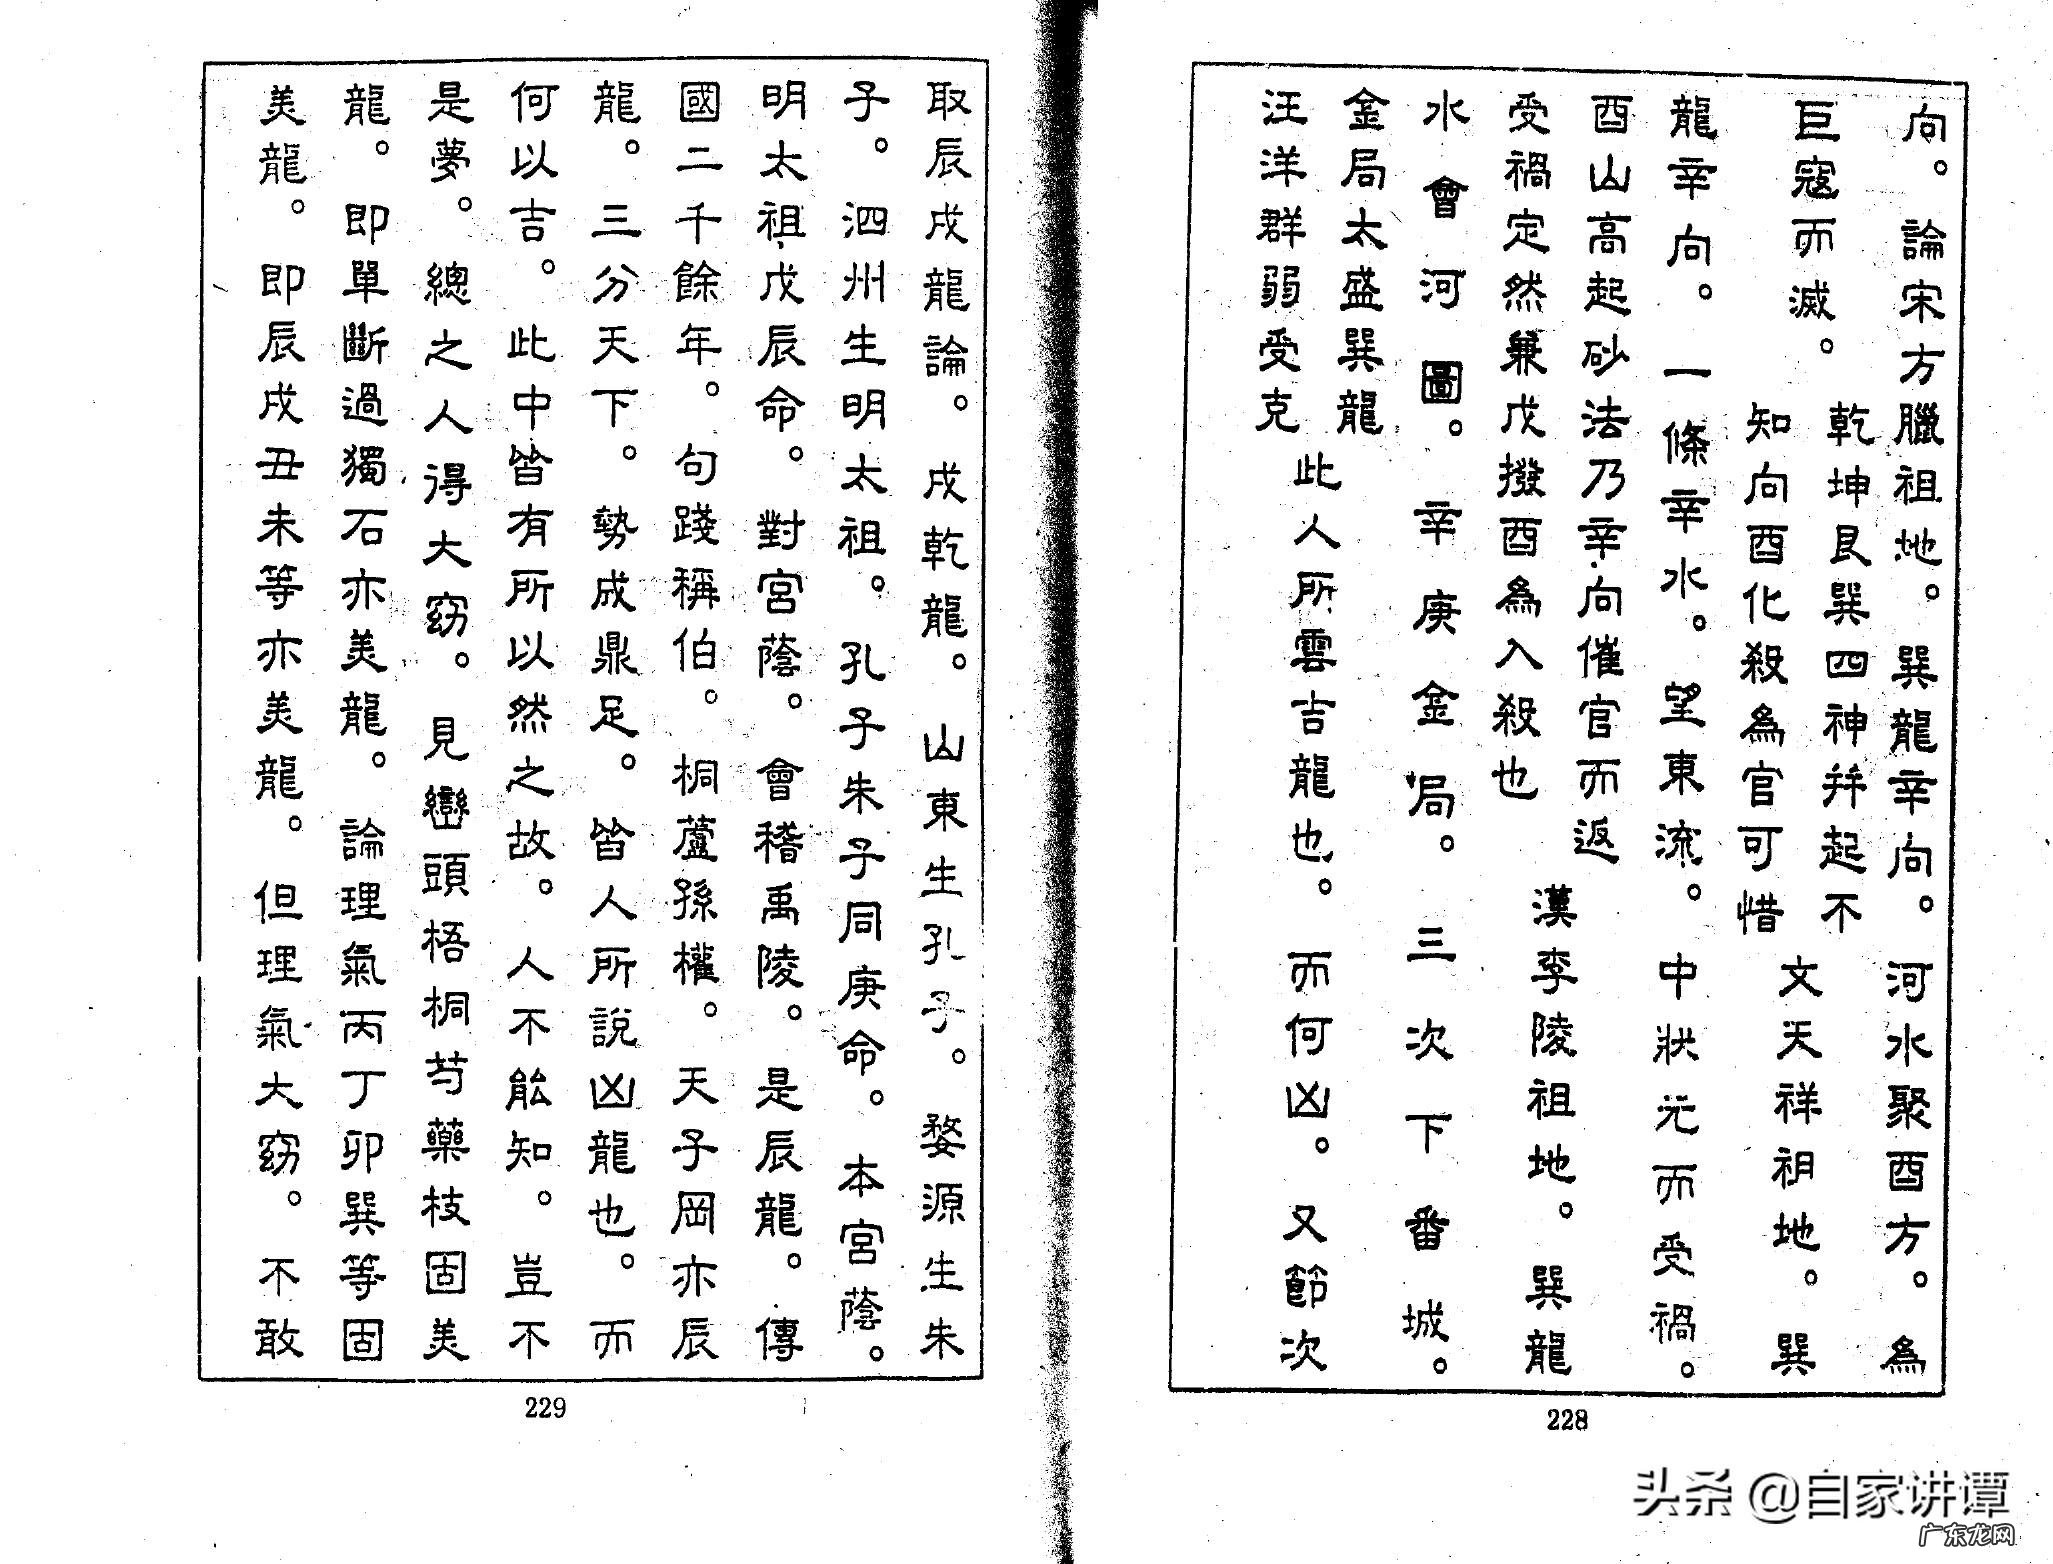 向。論宋方臘祖地。巽龍辛向。河水聚酉方。為
巨寇而滅。
乾坤艮巽四神并起不
知向酉化殺為官可惜
文天祥祖地。巽
龍辛向。一條辛水。望東流。中狀元而受禍。
酉山高起砂法乃辛向催官而返
受禍定然兼戊撥酉為入殺也
漢李陵祖地。巽龍
水會河圖。辛庚金局。三次下番城。
金局太盛巽龍
汪洋群弱受克
此人所雲吉龍也。而何凶。又節次
228
取辰戌龍論。戌乾龍。山東生孔子。婺源生朱
子。泗州生明太祖。孔子朱子同庚命。本宮蔭。
明太祖戊辰命。對宮蔭。會稽禹陵。是辰龍。傳
國二千餘年。句踐稱伯。桐蘆孫權。天子岡亦辰
龍。三分天下。勢成鼎足。皆人所說凶龍也。而
何以吉。此中皆有所以然之故。人不能知。豈不
是夢。總之人得大竊。見巒頭梧桐芍藥枝固美
龍。即單斷過獨石亦美龍。論理氣丙丁卯巽等固
美龍。即辰戌丑未等亦美龍。但理氣大竊。不敢
229
头条 @自家讲谭
广东龙网